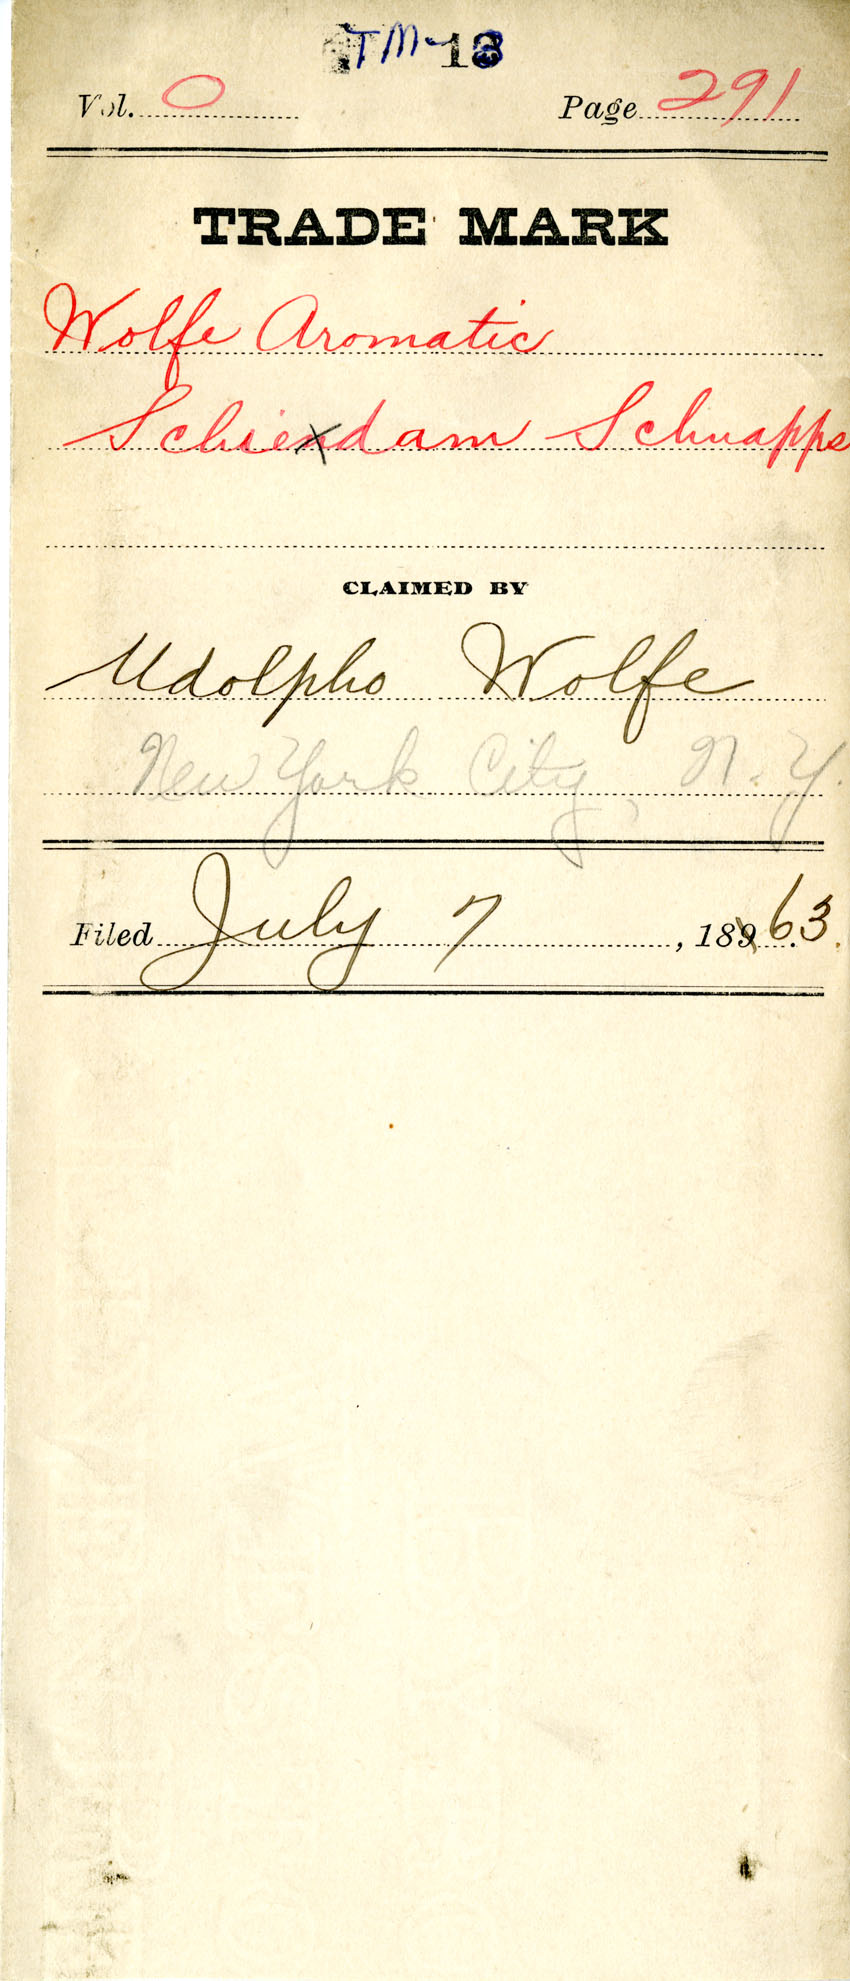 TM-18
Vol. 0 Page 291
TRADE MARK
Wolfe Aromatic
Schiendam Schnapps
CLAIMED BY
Udolpho Wolfe
New York City, N.Y.
Filed July 7, 1863.